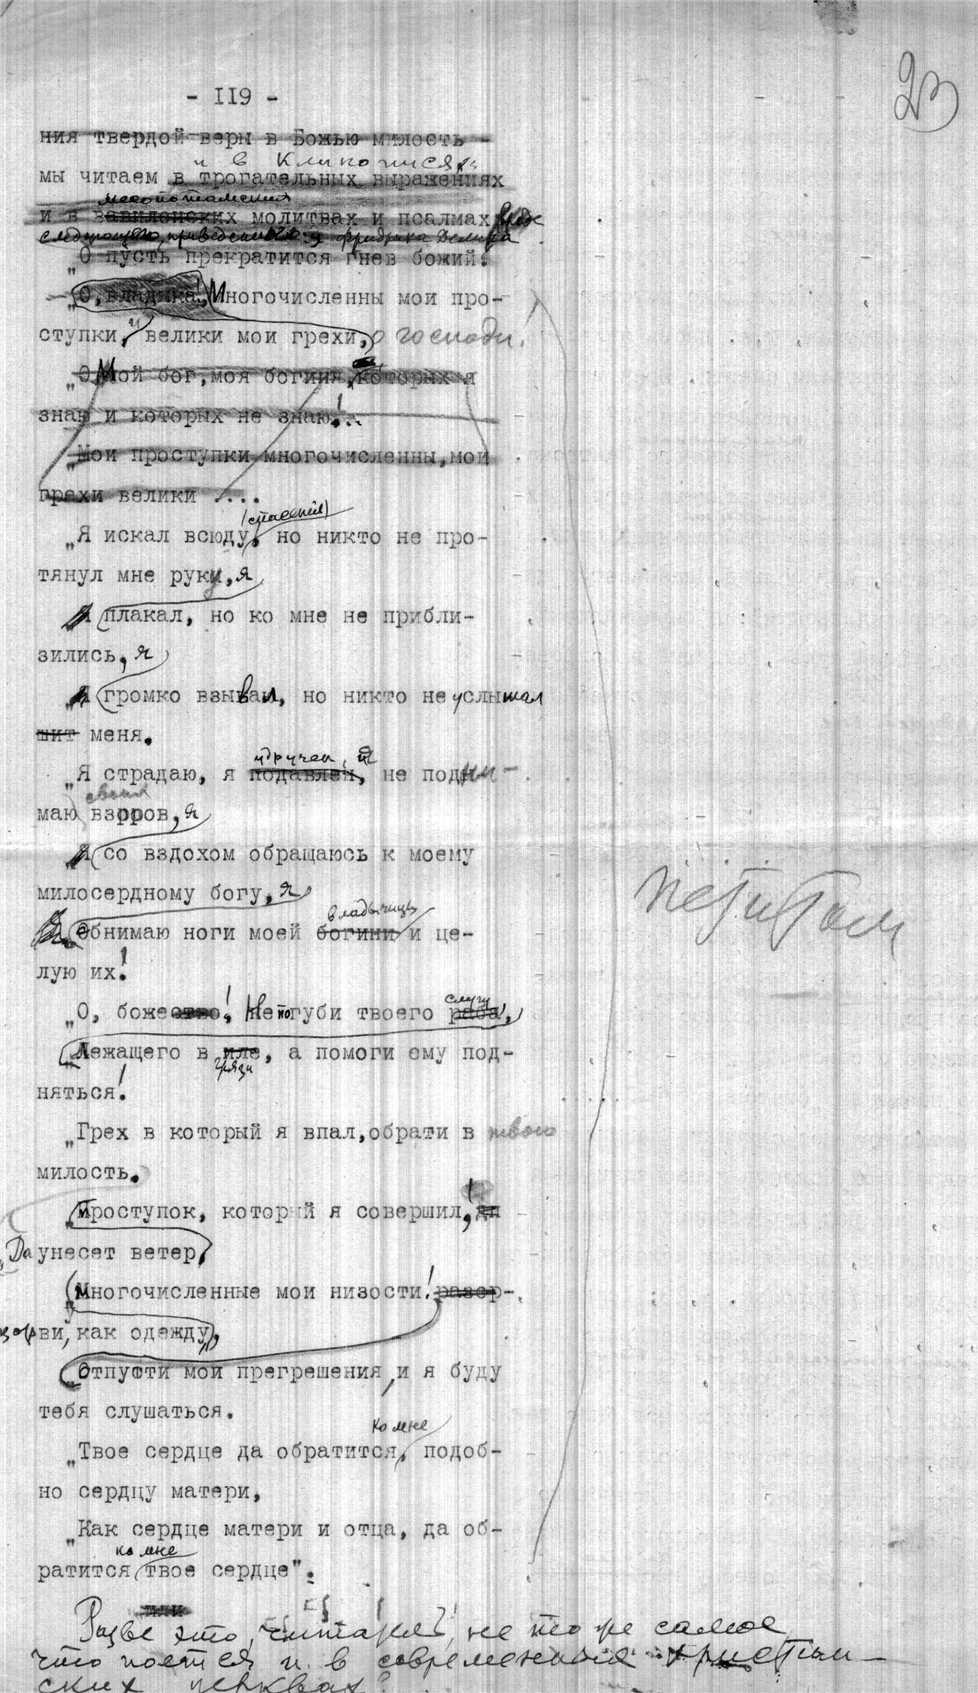 23
- 119 -
ния твердой веры в Божью милость -
и в Клинописях
мы читаем в трогательных выражениях
месопотамских
и в вавилонских молитвах и псалмах вроде
следующего, приведенного у Фридриха Делича
„О пусть прекратится гнев божий.
„О, владыка! Многочисленны мои про-
ступки, и велики мои грехи, о господи!
„О, Мой бог, моя богиня, которых я
знаю и которых не знаю!..
„Мои проступки многочисленны, мои
грехи велики ....
(спасения)
„Я искал всюду, но никто не про-
тянул мне руку, я
Я плакал, но ко мне не прибли-
зились, я
Я громко взывал, но никто не услышал
шит меня.
удручен, я
„Я страдаю, я подавлен, не подни-
своих
маю взоров, я
Я со вздохом обращаюсь к моему
милосердному богу, я
владычицы
Я обнимаю ноги моей богини и це-
лую их!
петитом
слугу
„О, божество! Не погуби твоего раба,
„Лежащего в иле, а помоги ему под-
грязи
няться!
„Грех в который я впал, обрати в твою
милость.
„Проступок, который я совершил, да
„Да унесет ветер,
„Многочисленные мои низости! разор-
ви, как одежду,
„Отпусти мои прегрешения, и я буду
тебя слушаться.
ко мне
„Твое сердце да обратится, подоб-
но сердцу матери,
„Как сердце матери и отца, да об-
ко мне
ратится твое сердце".
Разве это, читатель, не то же самое,
что поется и в современных христиан-
ских церквах?